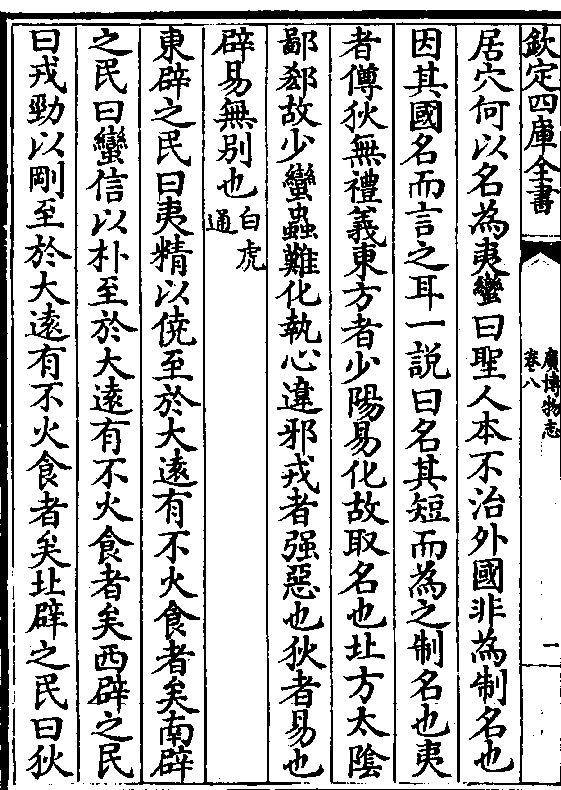 欽定四庫全書
廣博物志
卷八
一
居穴何以名為夷蠻曰聖人本不治外國非為制名也
因其國名而言之耳一説曰名其短而為之制名也夷
者僔狄無禮義東方者少陽易化故取名也北方太隂
鄙郄故少蠻蟲難化執心違邪戎者强惡也狄者易也
辟易無别也白虎通
東辟之民曰夷精以僥至於大逺有不火食者矣南辟
之民曰蠻信以朴至於大逺有不火食者矣西辟之民
曰戎勁以剛至於大逺有不火食者矣北辟之民曰狄